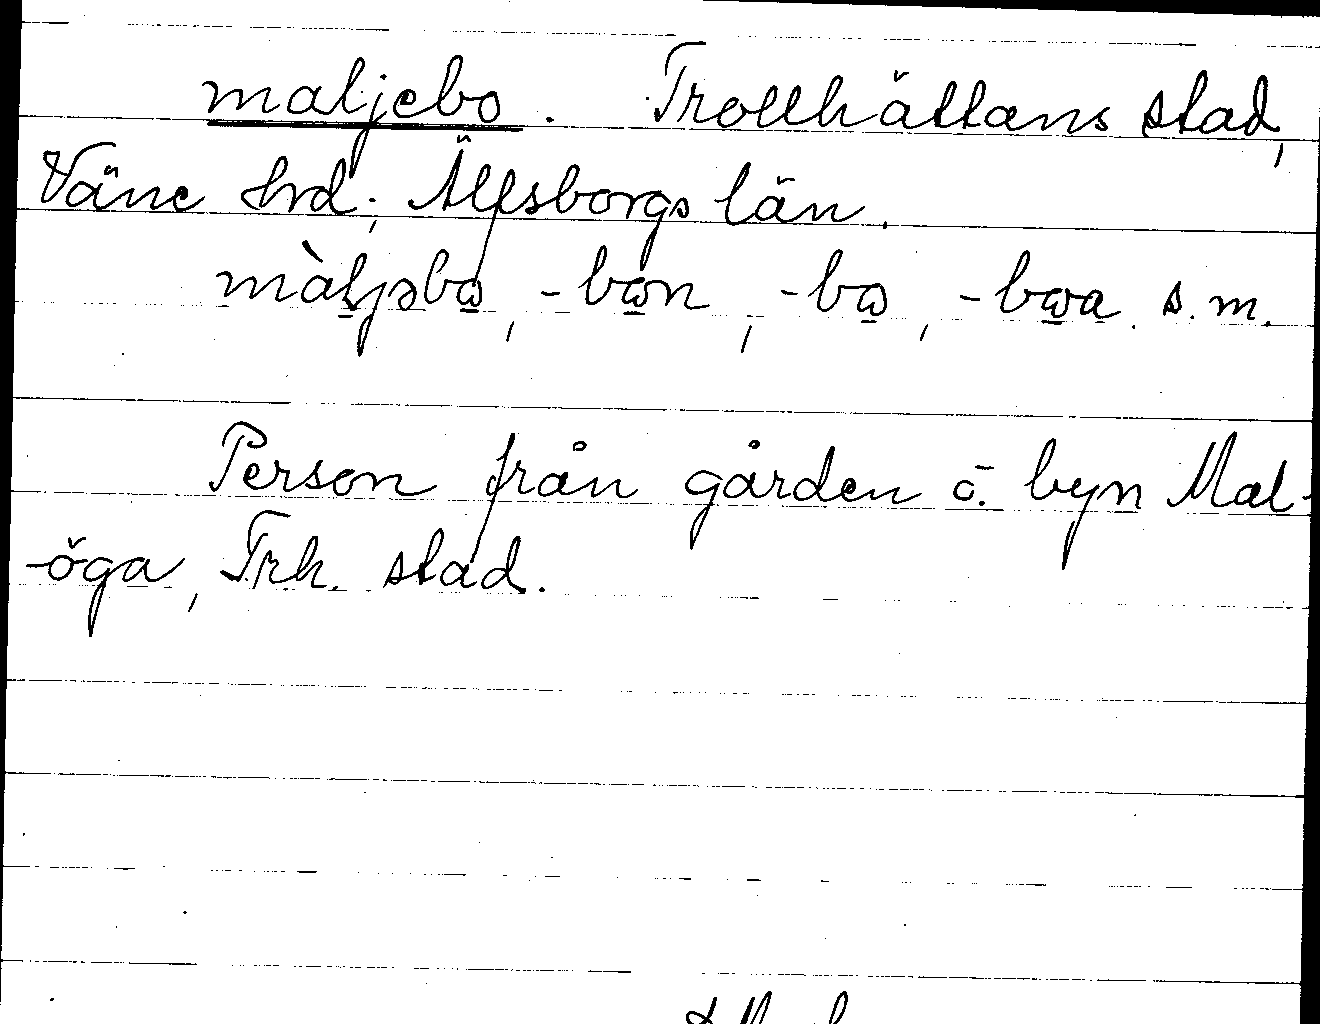 maljebo. Trollhättans stad,
Väne hrd; Älfsborgs län.
màljəbꞷ, -bꞷn, -bꞷ, -bꞷa s.m.
Person från gården o. byn Mal-
-öga, Trh. stad.